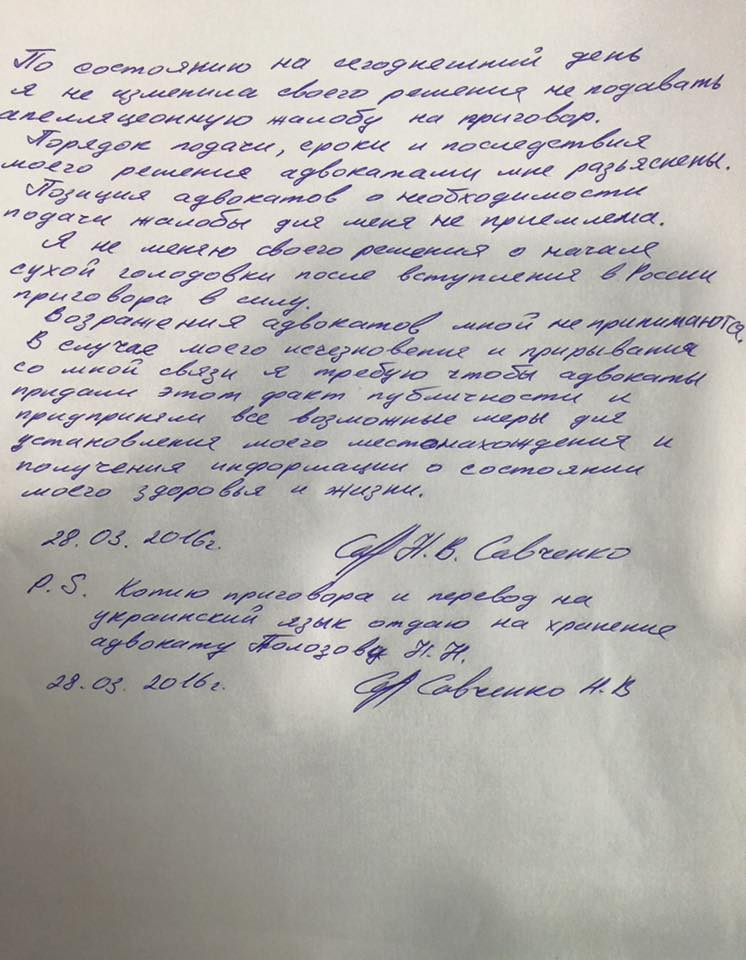 По состоянию на сегоднешний день
я не изменила своего решения не подавать
апелляцеонную жалобу на приговор.
Порядок подачи, сроки и последствия
моего решения адвокатами мне разьяснены.
Позиция адвокатов о необходимости
подачи жалобы для меня не приемлема.
Я не меняю своего решения о начале
сухой голодовки после вступления в России
приговора в силу.
Возражения адвокатов мной не принимаются.
В случае моего исчезновение и прирывания
со мной связи я требую чтобы адвокаты
придали этот факт публичности и
придприняли все возможные меры для
установления моего местонахождения и
получения информации о состоянии
моего здоровья и жизни.
28.03.2016г. Н.В. Савченко
P.S. Копию приговора и перевод на
украинский язык отдаю на хранение
адвокату Полозову Н.Н.
28.03.2016г. Савченко Н.В